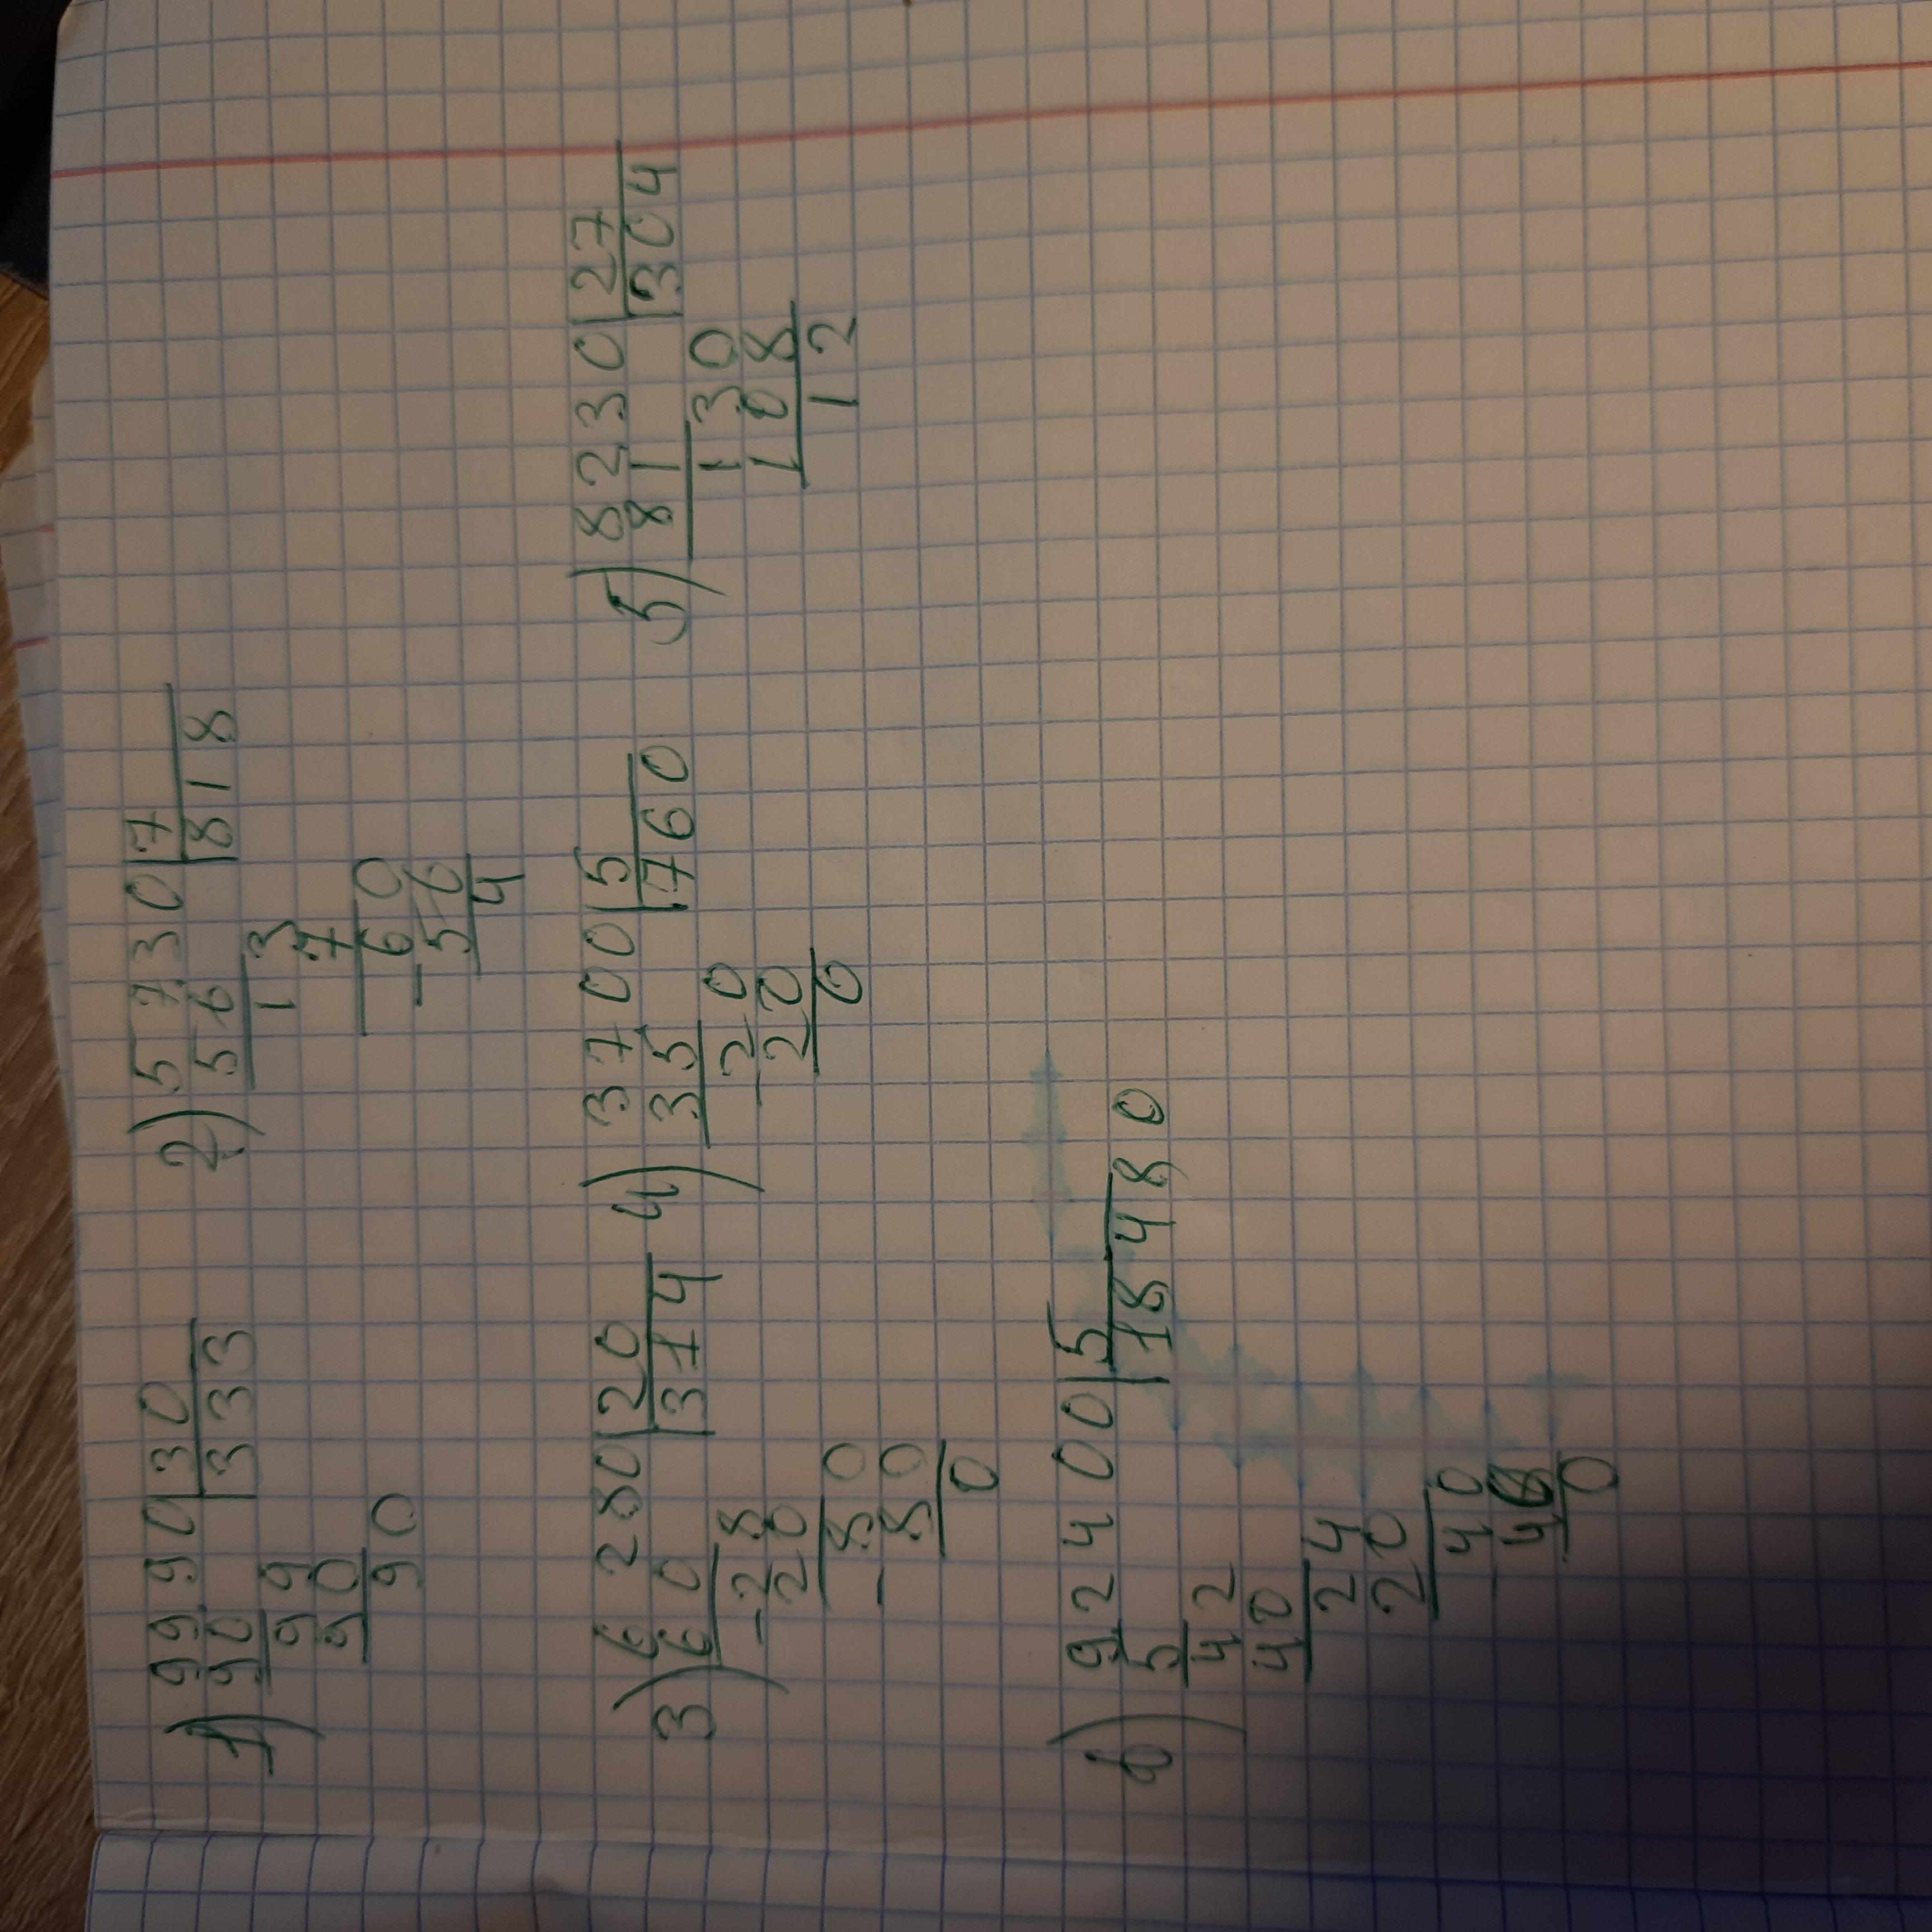 1) 9990 | 30
90 | 333
99
90
90
2) 5730 | 7
56 | 818
13
7
60
- 56
4
3) 6280 | 20
60 | 314
- 28
20
80
- 80
0
4) 3700 | 5
35 | 760
- 20
20
0
5) 8230 | 27
81 | 304
130
108
12
6) 92400 | 5
5 | 18480
42
40
24
20
40
- 40
0